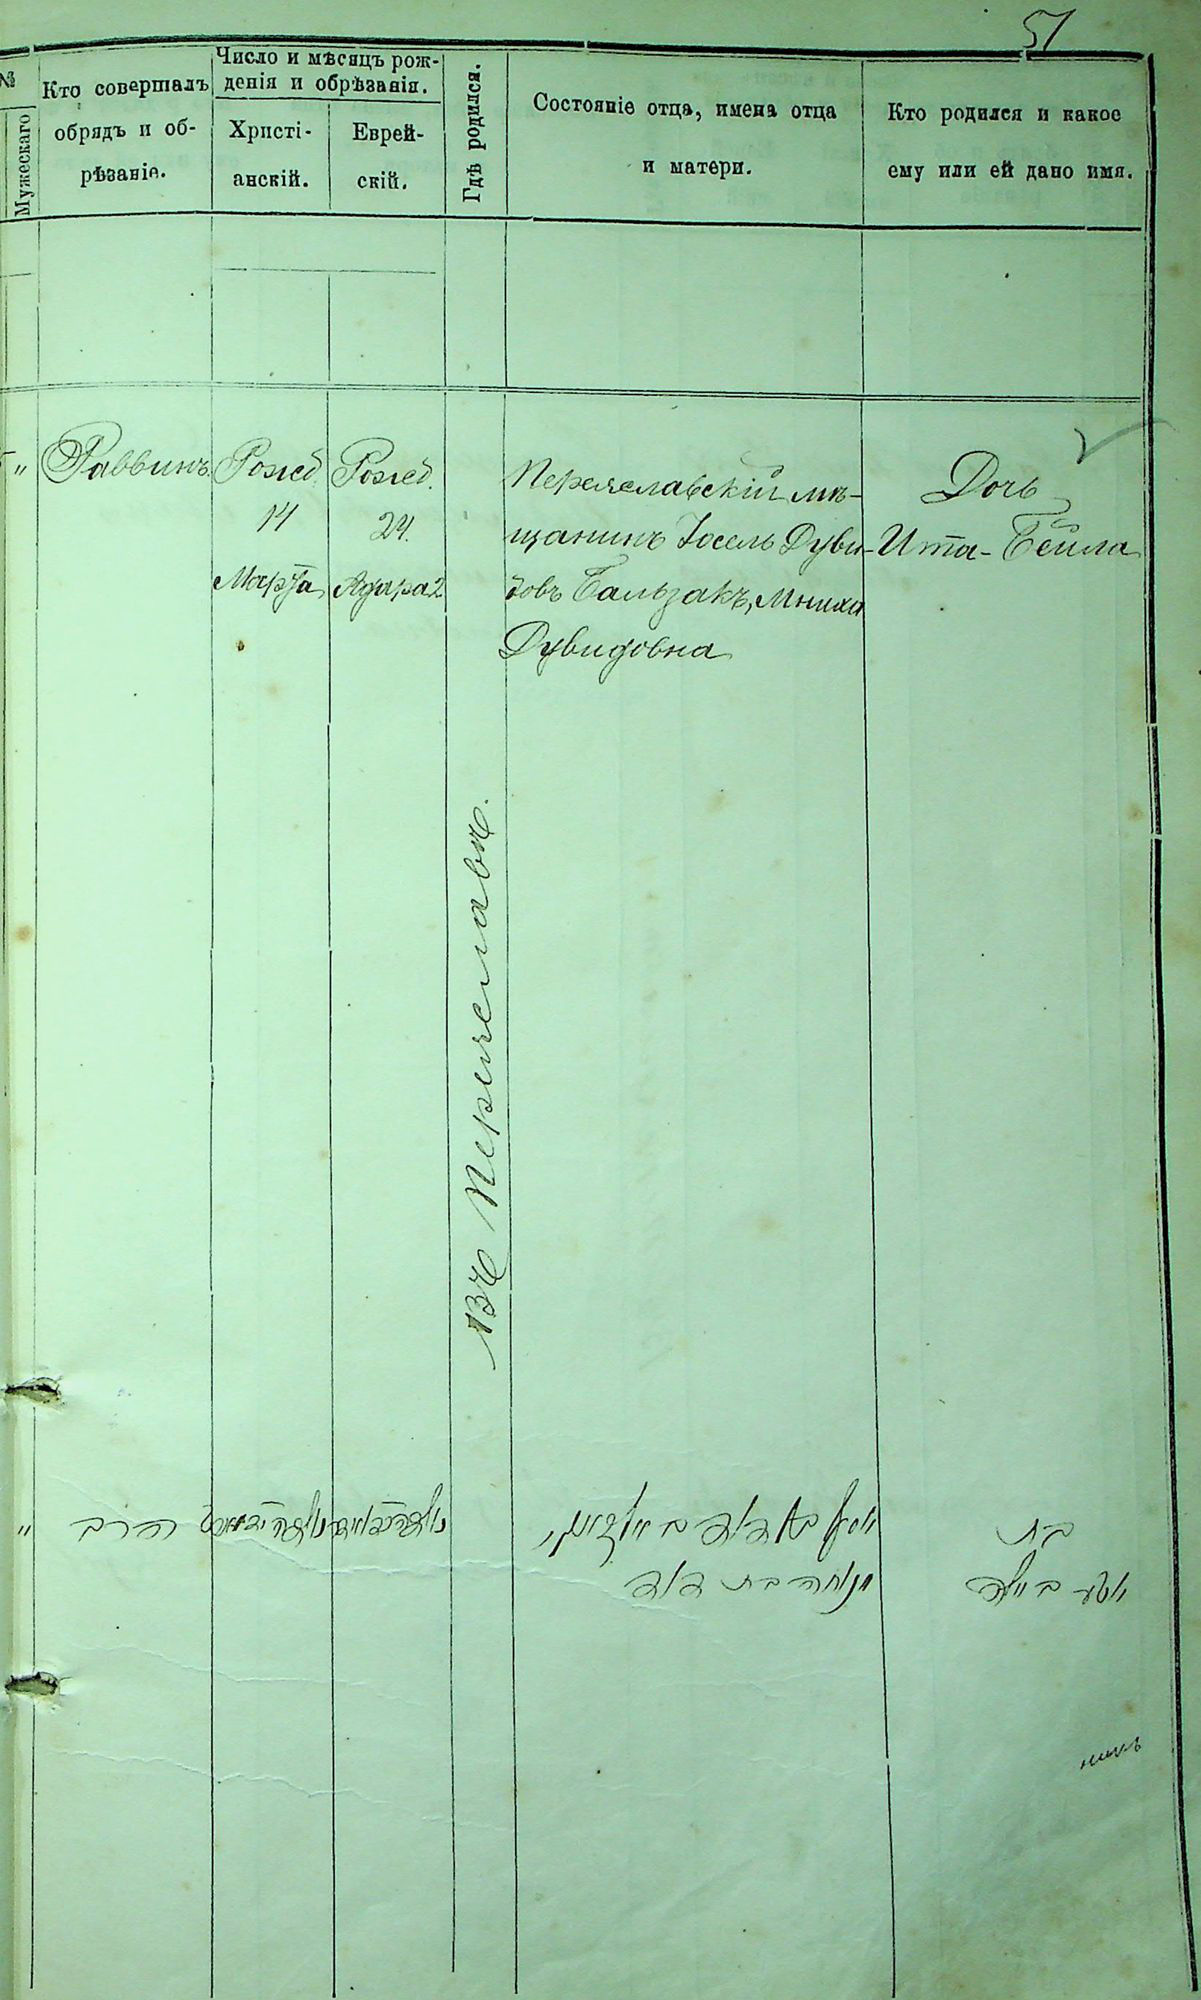 51
№
Мужескаго
Кто совершалъ
обрядъ и об-
рѣзаніе.
Число и мѣсяцъ рож-
денія и обрѣзанія.
Христі-
анскій.
Еврей-
скій.
Гдѣ родился.
Состояніе отца, имена отца
и матери.
Кто родился и какое
ему или ей дано имя.
"
Раввинъ.
Рожд.
14
Марта
Рожд.
24.
Адара 2
Въ Переяславѣ.
Переяславскій мѣ-
щанинъ Іосель Дуви-
довъ Бальзакъ, Мниха
Дувидовна
Дочь
Ита-Бейла
"
הרב
בת
יטע ביילה
בת דוד
никъ